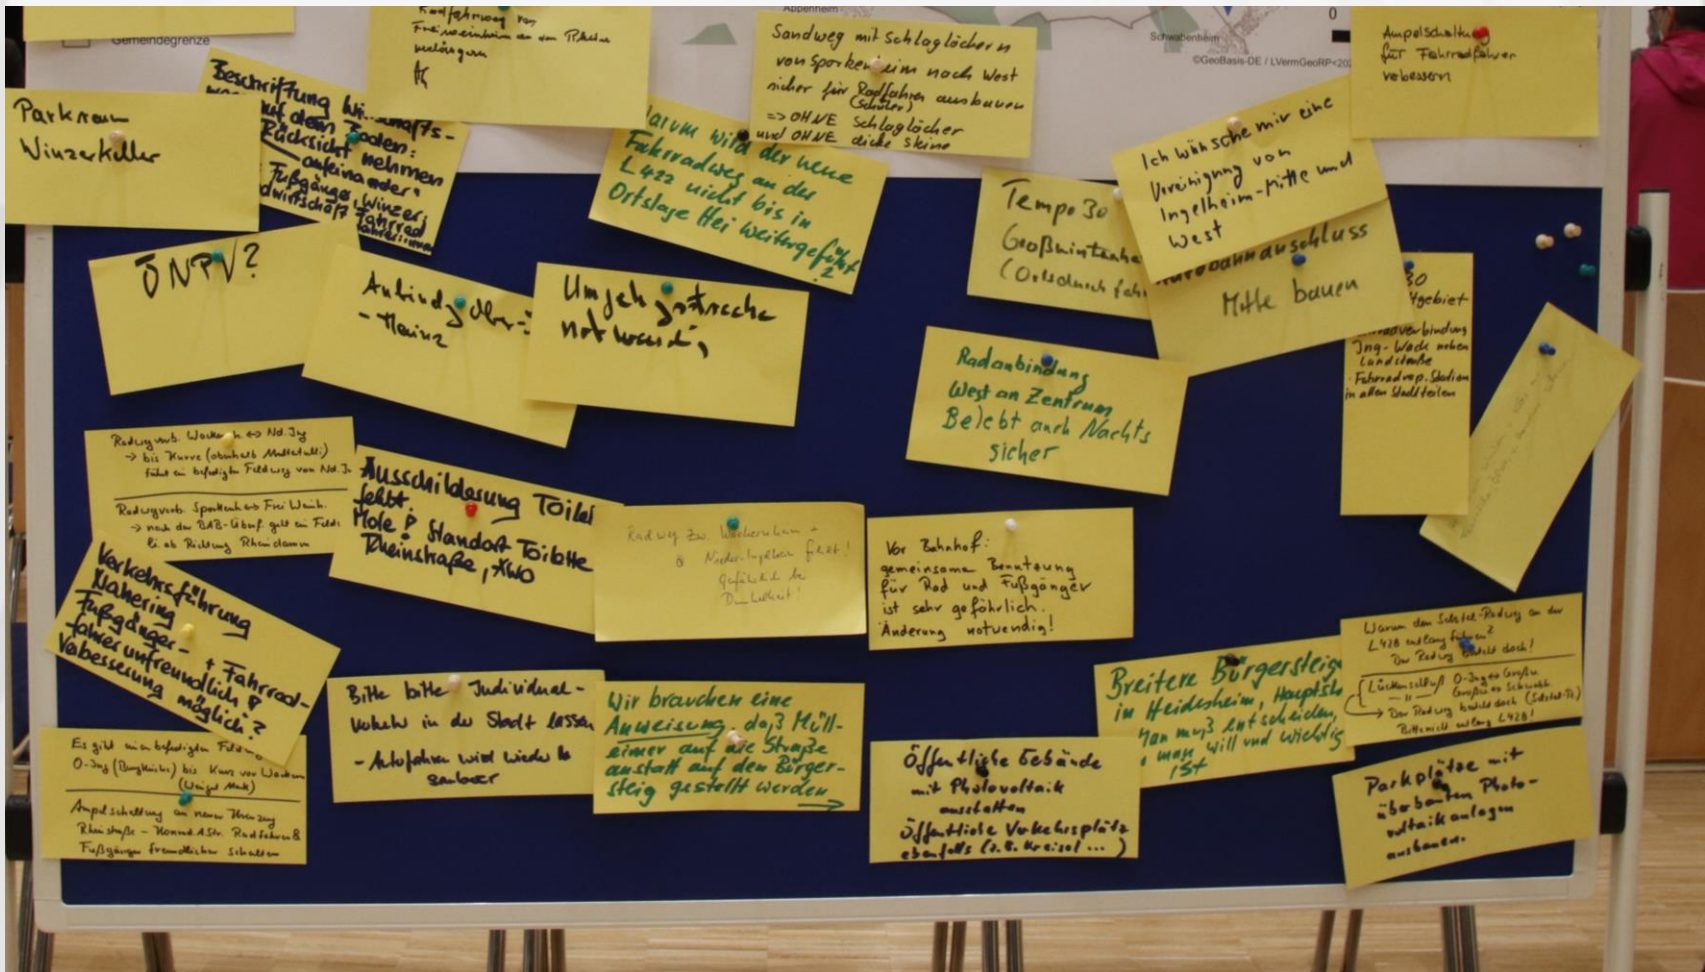 Gemeindegrenze
Appenheim
Schwabenheim
0
©GeoBasis-DE / LVermGeoRP<202
Radfahrweg von
Freiweinheim an den
verlängern
Sandweg mit Schlaglöchern
von Sporkenheim nach West
sicher für Radfahrer ausbauen
(Schüler)
=> OHNE Schlaglöcher
und OHNE dicke Steine
Ampelschaltung
für Fahrradfahrer
verbessern
Parkraum
Winzerkeller
Beschriftung
auf dem Boden:
Rücksicht nehmen
aufeinander:
Fußgänger, Winzer,
dwirtschaft Fahrrad
Warum wird der neue
Fahrradweg an der
L422 nicht bis in
Ortslage Hei weitergeführt
?
Tempo 30
(Ortsdurchfah
Ich wünsche mir eine
Vereinigung von
Ingelheim-Mitte und
West
Autobahnanschluss
Mitte bauen
ÖNPV?
Anbindg
- Mainz
Umgehgsstrecke
notwendig
30
tgebiet
Radverbindung
Ing-Wack neben
Landstraße
- Fahrradrep. Station
in allen Stadtteilen
Radanbindung
West an Zentrum
Belebt auch Nachts
sicher
Radwegverb. Wackernh <-> Nd. Ing
-> bis Kurve (oberhalb
führt ein befestigter Feldweg von Nd. In
Radwegverb. Sporkenh <-> Frei Weinh.
-> nach der BAB-Überf. geht ein Feldw
li. ab Richtung Rheindamm
Ausschilderung Toilet
fehlt.
Mole? Standort Toilette
Rheinstraße, XWO
Radweg zw. Wackernheim +
Nieder-Ingelheim fehlt!
Gefährlich bei
Dunkelheit!
Vor Bahnhof:
gemeinsame Benutzung
für Rad und Fußgänger
ist sehr gefährlich.
Änderung notwendig!
Verkehrsführung
Nahering
Fußgänger- + Fahrrad-
fahrerunfreundlich!
Verbesserung möglich?
Bitte bitte Individual-
verkehr in der Stadt lassen
- Autofahren wird wieder
sauberer
Wir brauchen eine
Anweisung, daß Müll-
eimer auf die Straße
anstatt auf den Bürger-
steig gestellt werden
→
Breitere Bürgersteige
in Heidesheim, Hauptstr
Man muß entscheiden,
man will und wichtig
ist
Warum den Selztal-Radweg an der
L428 entlang führen?
Der Radweg besteht doch!
Lückenschluß O-Ing <-> Großw
" Großw <-> Schwabh
-> Der Radweg besteht doch (Selztal-Tr)
Bitte nicht entlang L428!
Es gibt einen befestigten Feldweg
O-Ing (Burgkirche) bis kurz vor Wackern
(Weingut
Ampelschaltung an neuer Kreuzung
Rheinstraße - Konrad A Str. Radfahrer &
Fußgänger freundlicher schalten
Öffentliche Gebäude
mit Photovoltaik
ausstatten
Öffentliche Verkehrsplätze
ebenfalls (z.B. Kreisel ...)
Parkplätze mit
überbauten Photo-
voltaikanlagen
ausbauen.